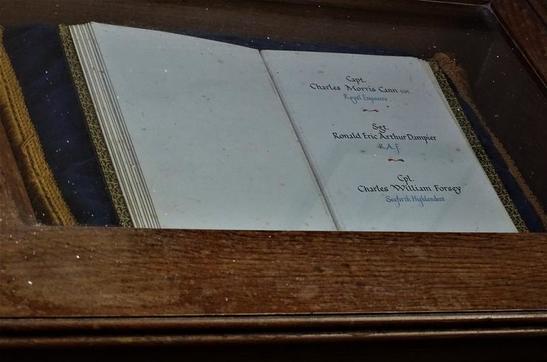 Capt.
Charles Morris Cann
Royal Engineers
Sgt.
Ronald Eric Arthur Dampier
R.A.F
Cpl.
Charles William Forsey
Seaforth Highlanders